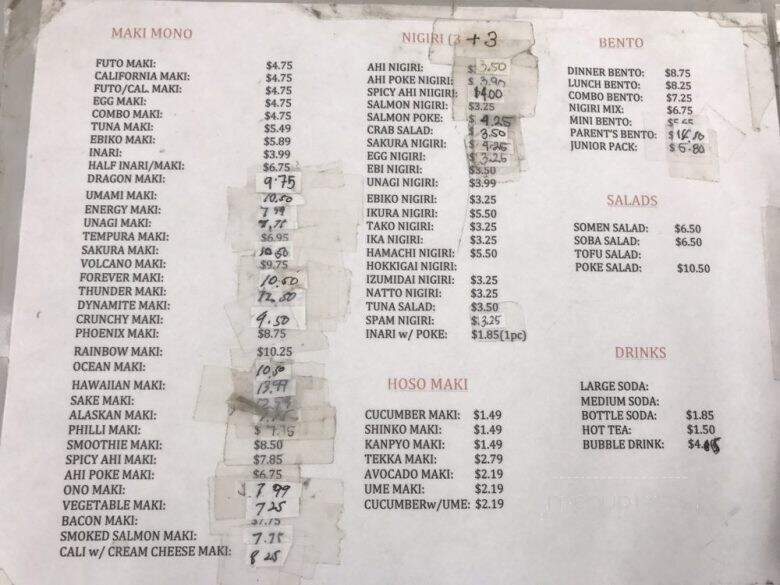 MAKI MONO
FUTO MAKI: $4.75
CALIFORNIA MAKI: $4.75
FUTO/CAL. MAKI: $4.75
EGG MAKI: $4.75
COMBO MAKI: $4.75
TUNA MAKI: $5.49
EBIKO MAKI: $5.89
INARI: $3.99
HALF INARI/MAKI: $6.75
DRAGON MAKI: 9.75
UMAMI MAKI: 10.50
ENERGY MAKI: 7.99
UNAGI MAKI:
TEMPURA MAKI: $6.95
SAKURA MAKI: 10.50
VOLCANO MAKI: $9.75
FOREVER MAKI: 10.50
THUNDER MAKI: 12.50
DYNAMITE MAKI:
CRUNCHY MAKI: 9.50
PHOENIX MAKI: $8.75
RAINBOW MAKI: $10.25
OCEAN MAKI: 10.50
HAWAIIAN MAKI: 13.99
SAKE MAKI:
ALASKAN MAKI:
PHILLI MAKI: $ 7.75
SMOOTHIE MAKI: $8.50
SPICY AHI MAKI: $7.85
AHI POKE MAKI: $6.75
ONO MAKI: $ 7.99
VEGETABLE MAKI: 7.25
BACON MAKI: $7.75
SMOKED SALMON MAKI: 7.75
CALI w/ CREAM CHEESE MAKI: 8.25
NIGIRI (3 +3
AHI NIGIRI: $ 3.50
AHI POKE NIGIRI: $ 3.90
SPICY AHI NIIGIRI: $4.00
SALMON NIGIRI: $3.25
SALMON POKE: $ 4.25
CRAB SALAD: 3.50
SAKURA NIGIRI: $ 4.25
EGG NIGIRI: $ 3.25
EBI NIGIRI: $3.50
UNAGI NIGIRI: $3.99
EBIKO NIGIRI: $3.25
IKURA NIGIRI: $5.50
TAKO NIGIRI: $3.25
IKA NIGIRI: $3.25
HAMACHI NIGIRI: $5.50
HOKKIGAI NIGIRI:
IZUMIDAI NIGIRI: $3.25
NATTO NIGIRI: $3.25
TUNA SALAD: $3.50
SPAM NIGIRI: $3.25
INARI w/ POKE: $1.85(1pc)
HOSO MAKI
CUCUMBER MAKI: $1.49
SHINKO MAKI: $1.49
KANPYO MAKI: $1.49
TEKKA MAKI: $2.79
AVOCADO MAKI: $2.19
UME MAKI: $2.19
CUCUMBERw/UME: $2.19
BENTO
DINNER BENTO: $8.75
LUNCH BENTO: $8.25
COMBO BENTO: $7.25
NIGIRI MIX: $6.75
MINI BENTO:
PARENT'S BENTO:
JUNIOR PACK: $5.80
SALADS
SOMEN SALAD: $6.50
SOBA SALAD: $6.50
TOFU SALAD:
POKE SALAD: $10.50
DRINKS
LARGE SODA:
MEDIUM SODA:
BOTTLE SODA: $1.85
HOT TEA: $1.50
BUBBLE DRINK: